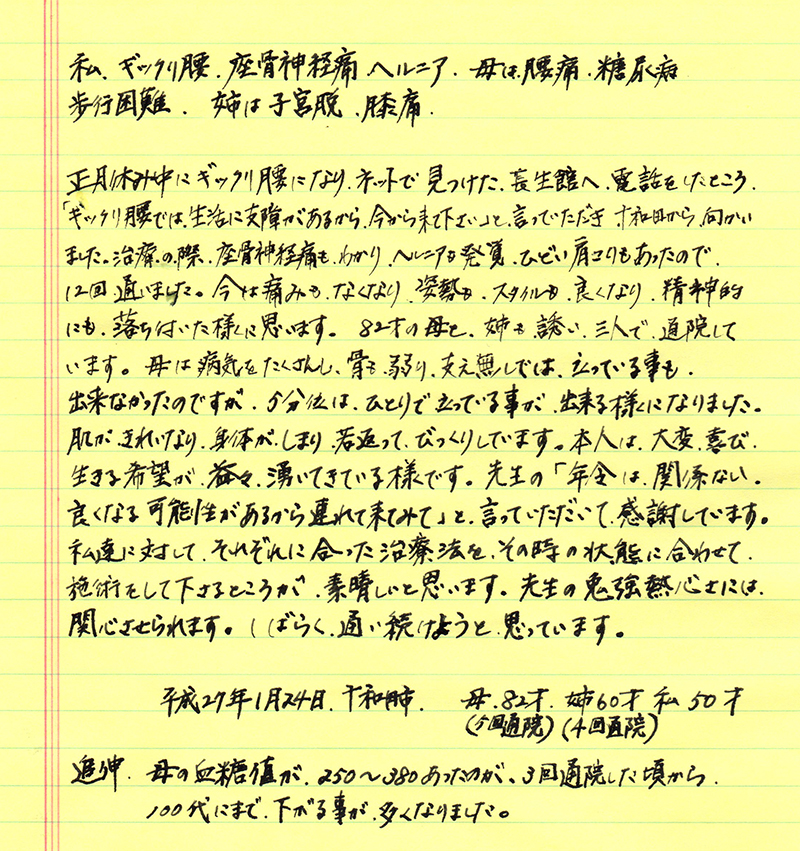 私、ギックリ腰、座骨神経痛、ヘルニア、母は、腰痛、糖尿病
歩行困難、姉は子宮脱、膝痛、
正月休み中にギックリ腰になり、ネットで見つけた、長生館へ、電話をしたところ、
「ギックリ腰では、生活に支障があるから、今から来て下さい」と、言っていただき十和田から、向かい
ました。治療の際、座骨神経痛も、わかり、ヘルニアも発覚、ひどい肩コリもあったので、
12回通いました。今は痛みも、なくなり、姿勢も、スタイルも、良くなり、精神的
にも、落ち付いた様に思います。82才の母と、姉も誘い、三人で、通院して
います。母は病気をたくさんし、骨も、弱り、支え無しでは、立っている事も、
出来なかったのですが、5分位は、ひとりで立っている事が、出来る様になりました。
肌が、きれいなり、身体が、しまり、若返って、びっくりしています。本人は、大変、喜び、
生きる希望が、益々、湧いてきている様です。先生の「年令は、関係ない。
良くなる可能性があるから連れて来てみて」と、言っていただいて、感謝しています。
私達に対して、それぞれに合った治療法を、その時の状態に合わせて、
施術をして下さるところが、素晴しいと思います。先生の勉強熱心さには、
関心させられます。しばらく、通い続けようと、思っています。
平成27年1月24日、十和田市、母、82才、姉60才 私 50才
(5回通院) (4回通院)
追伸、母の血糖値が、250〜380あったのが、3回通院した頃から、
100代にまで、下がる事が、多くなりました。